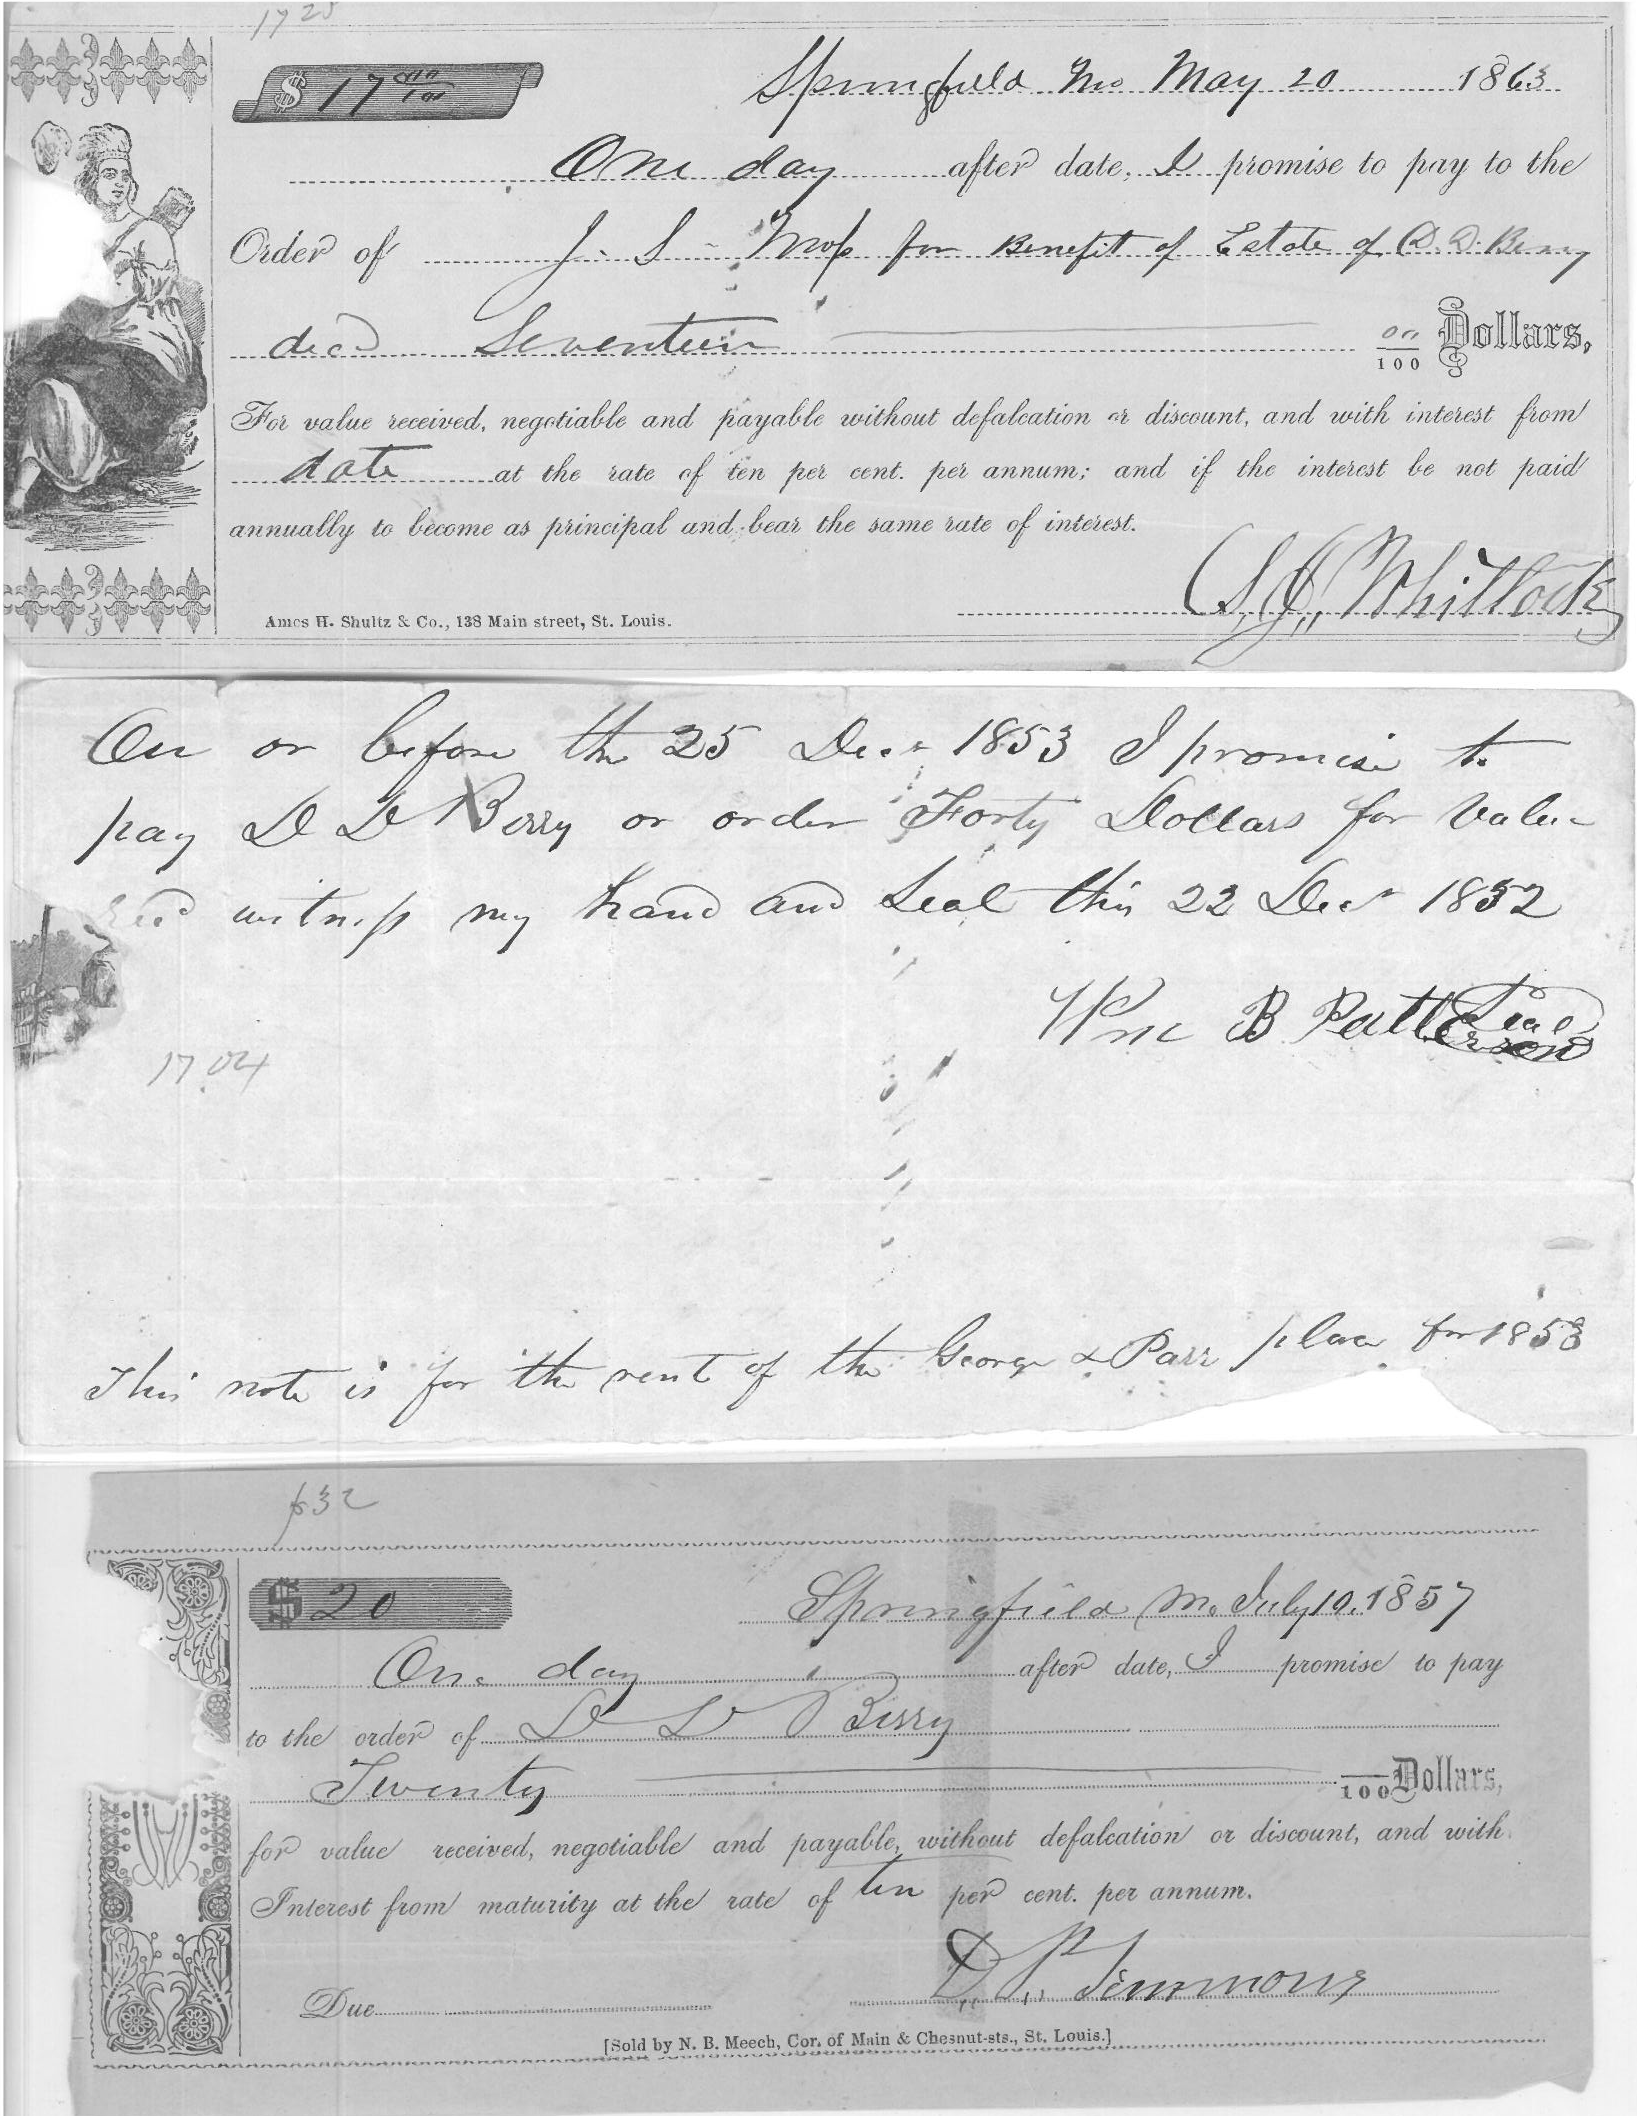 1725
$ 17 00/100 Springfield Mo May 20 1863
One day after date, I promise to pay to the
Order of J. S. Moss for Benefit of Estate of D. D. Berry
decd Seventeen 00/100 Dollars,
For value received, negotiable and payable without defalcation or discount, and with interest from
date at the rate of ten per cent. per annum; and if the interest be not paid
annually to become as principal and bear the same rate of interest.
Whitlock
Amos H. Shultz & Co., 138 Main street, St. Louis.
On or before the 25 Decr 1853 I promise to
pay D D Berry or order Forty Dollars for value
Recd witness my hand and Seal this 22 Decr 1852
Wm B Patterson Seal
1704
This note is for the rent of the George & Parr place for 1853
$ 20 Springfield Mo July 10. 1857
One day after date, I promise to pay
to the order of D D Berry
Twenty /100 Dollars,
for value received, negotiable and payable, without defalcation or discount, and with
Interest from maturity at the rate of ten per cent. per annum.
D. P. Simmons
Due
[Sold by N. B. Meech, Cor. of Main & Chesnut-sts., St. Louis.]